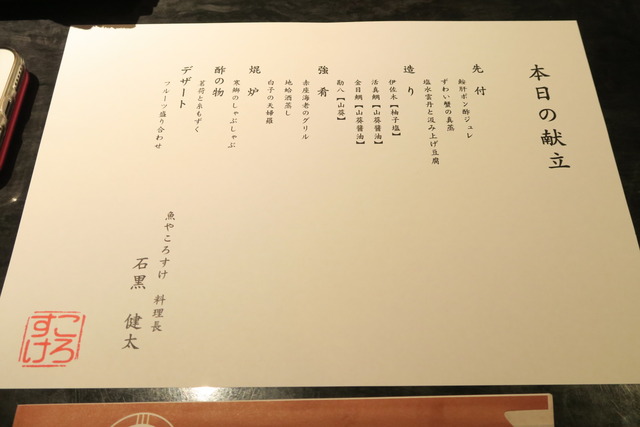 本日の献立
先付
鮟肝ポン酢ジュレ
ずわい蟹の真蒸
塩水雲丹と汲み上げ豆腐
造り
伊佐木【柚子塩】
活真鯛【山葵醤油】
金目鯛【山葵醤油】
勘八【山葵】
強肴
赤座海老のグリル
地蛤酒蒸し
白子の天婦羅
焜炉
寒鰤のしゃぶしゃぶ
酢の物
茗荷と糸もずく
デザート
フルーツ盛り合わせ
魚やころすけ 料理長
石黒 健太
ころ
すけ